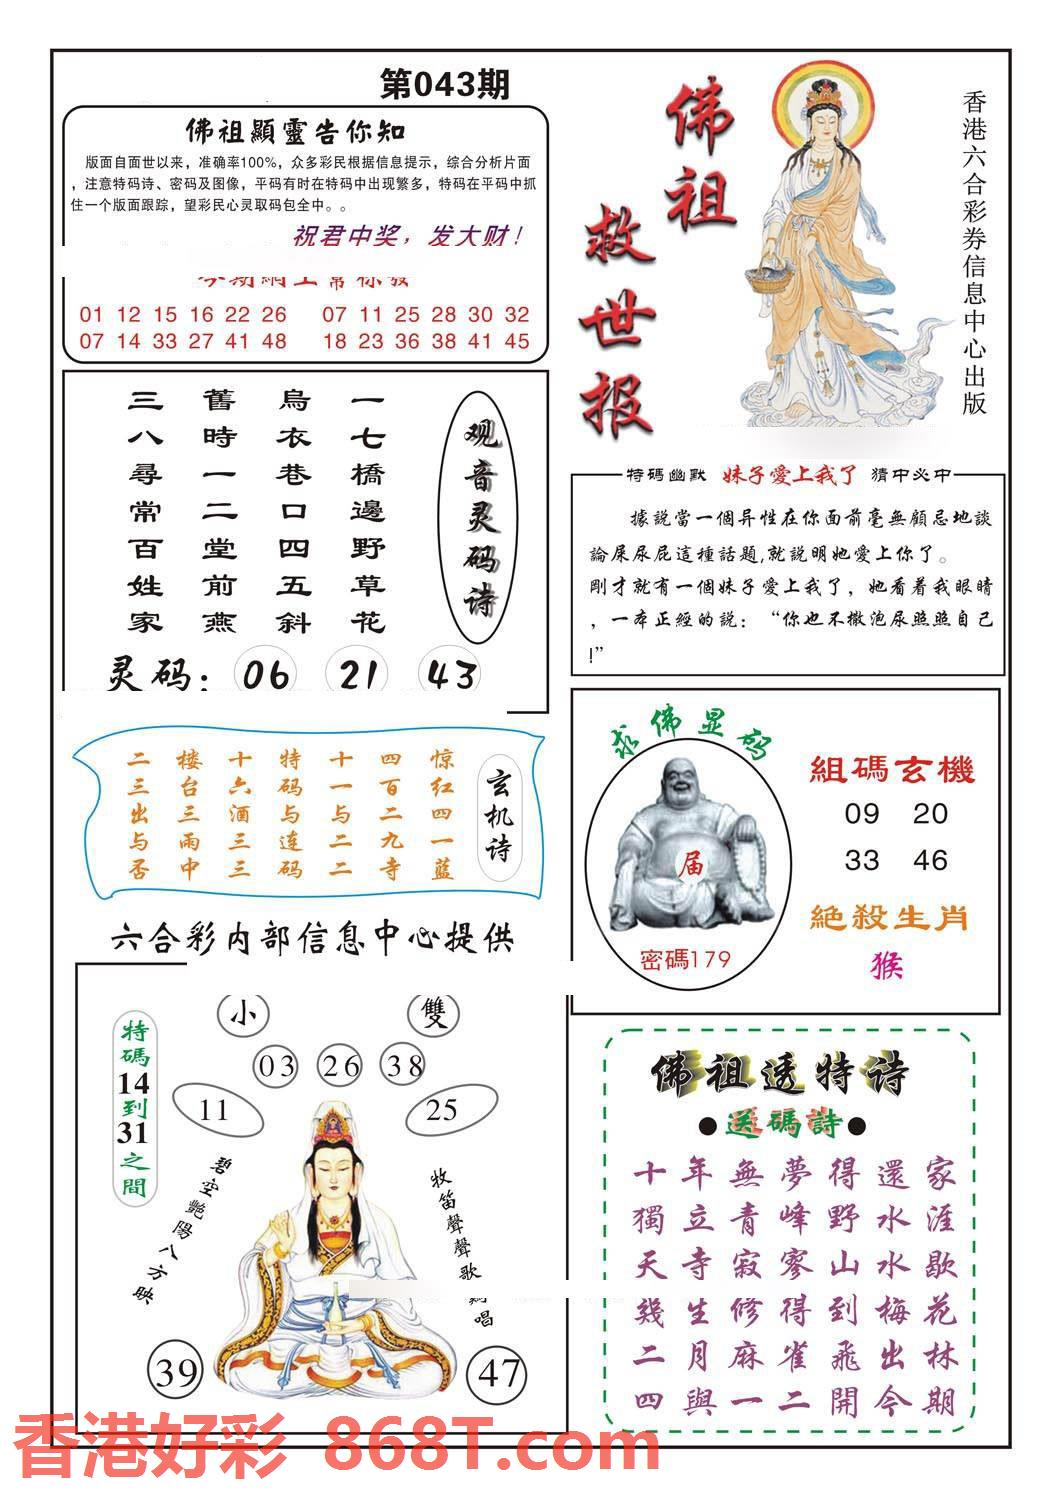 第043期
佛祖顯靈告你知
版面自面世以来，准确率100%，众多彩民根据信息提示，综合分析片面
，注意特码诗、密码及图像，平码有时在特码中出现繁多，特码在平码中抓
住一个版面跟踪，望彩民心灵取码包全中。。
祝君中奖，发大财！
01 12 15 16 22 26 07 11 25 28 30 32
07 14 33 27 41 48 18 23 36 38 41 45
佛祖
救世报
香港六合彩券信息中心出版
观音灵码诗
一七橋邊野草花
烏衣巷口四五斜
舊時一二堂前燕
三八尋常百姓家
灵码：06 21 43
特碼幽默 妹子愛上我了 猜中必中
據說當一個异性在你面前毫無顧忌地談
論屎尿屁這種話題,就説明她愛上你了。
剛才就有一個妹子愛上我了，她看着我眼睛
，一本正經的說：“你也不撒泡尿照照自己
!”
玄机诗
惊红四一蓝
四百二九寺
十一与二二
特码与连码
十六酒三三
楼台三雨中
二三出与否
求佛显码
届
密碼179
組碼玄機
09 20
33 46
絶殺生肖
猴
六合彩内部信息中心提供
特碼14到31之間
小 雙
03 26 38
11 25
碧空艷陽八方映
牧笛聲聲歌 唱
39 47
佛祖透特诗
●送碼詩●
十年無夢得還家
獨立青峰野水涯
天寺寂寥山水歇
幾生修得到梅花
二月麻雀飛出林
四與一二開今期
香港好彩 868T.com